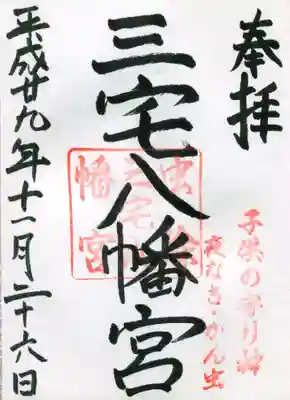 奉拝
子供の守り神
夜なき・かん虫
三宅八幡宮
三宅
幡宮
平成廿九年十一月二十六日